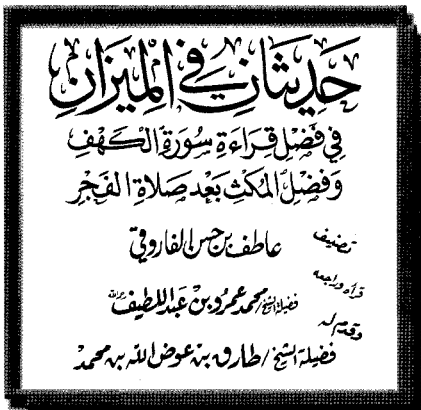 حَدِيثَانِ فِي الْمِيزَانِ
فِي فَضْلِ قِرَاءَةِ سُورَةِ الْكَهْفِ
وَفَضْلِ الْمُكْثِ بَعْدَ صَلَاةِ الْفَجْرِ
تصنيف
عاطف بن حسن الفاروقي
قرأه وراجعه
فضيلة الشيخ / محمد عمرو بن عبد اللطيف
وقدم له
فضيلة الشيخ / طارق بن عوض الله بن محمد